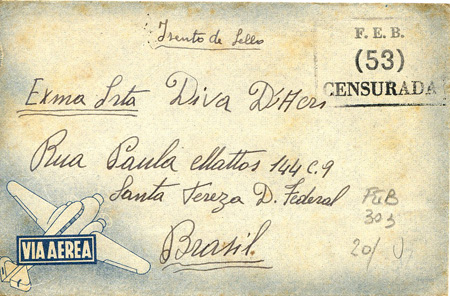 Isento de Sello
F. E. B.
(53)
CENSURADA
Exma Srta Diva D'
Rua Paula Mattos 144 C. 9
Santa Tereza D. Federal
Brasil.
VIA AEREA
FEB
303
20/